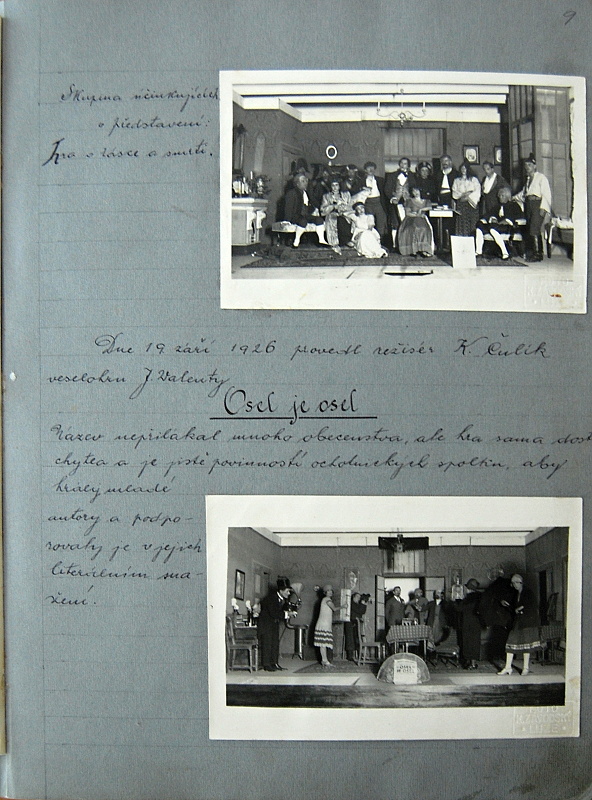 9
Skupina účinkujících
o představení:
Hra o lásce a smrti.
Dne 19 září 1926 provedl režisér K. Čulík
veselohru J. Valenty
Osel je osel
Název nepřilákal mnoho obecenstva, ale hra sama dost
chytla a je jistě povinností ochotnických spolků, aby
hrály mladé
autory a podpo-
rovaly je v jejich
literálním sna-
žení.
OSEL
JE OSEL